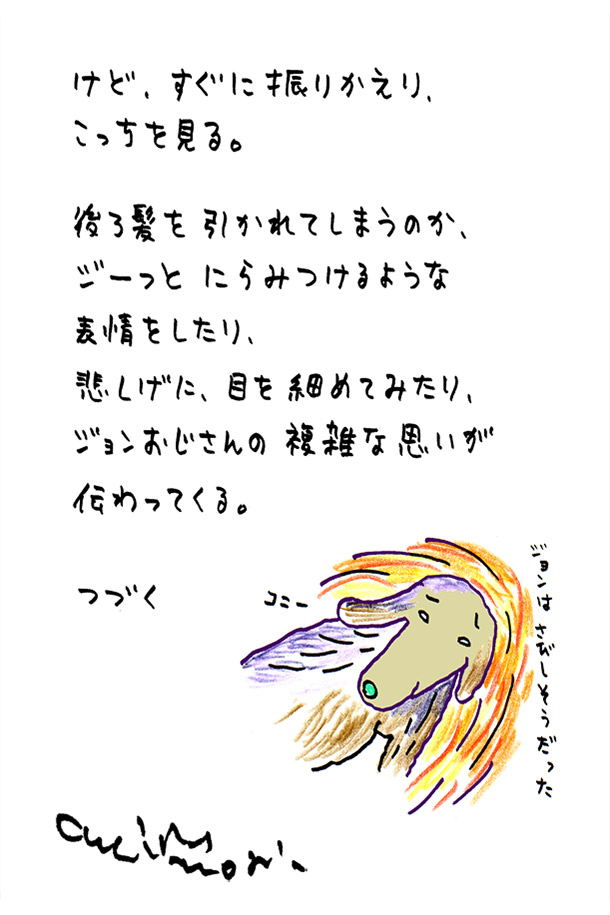 けど、すぐに振りかえり、
こっちを見る。
後ろ髪を引かれてしまうのか、
ジーっと にらみつけるような
表情をしたり、
悲しげに、目を細めてみたり、
ジョンおじさんの 複雑な思いが
伝わってくる。
つづく
コニー
ジョンは さびしそうだった